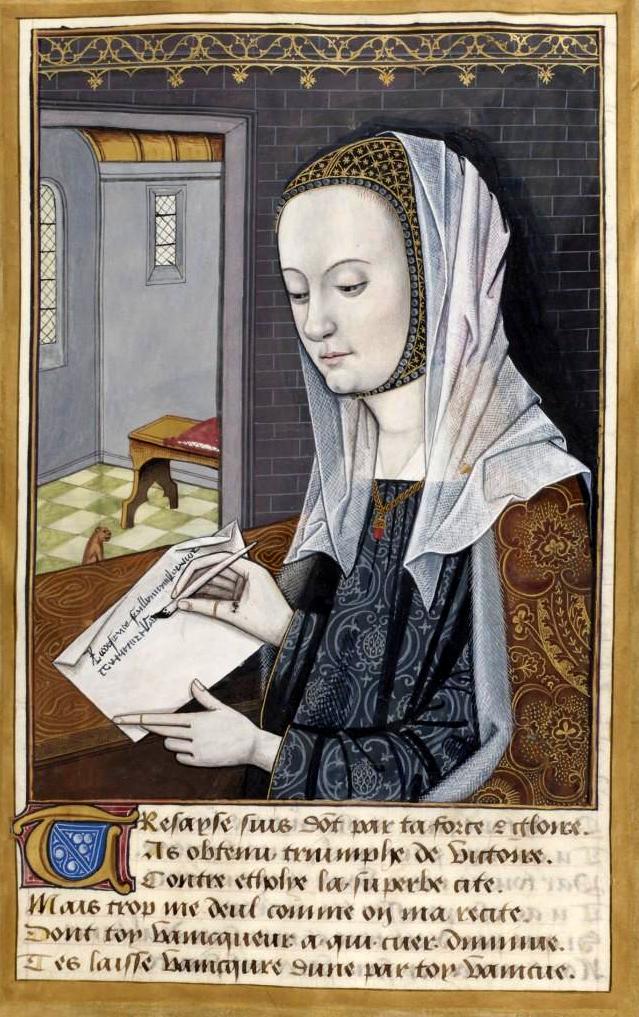 Tresayse suis dōt par ta force & gloire.
As obtenu triumphe de victoire.
Contre ethylye la superbe cite.
Mais trop me deul comme on ma recite.
Dont toy vaincqueur a qui cuer diminue.
Tes laisse vaincqure dune par toy vaincue.